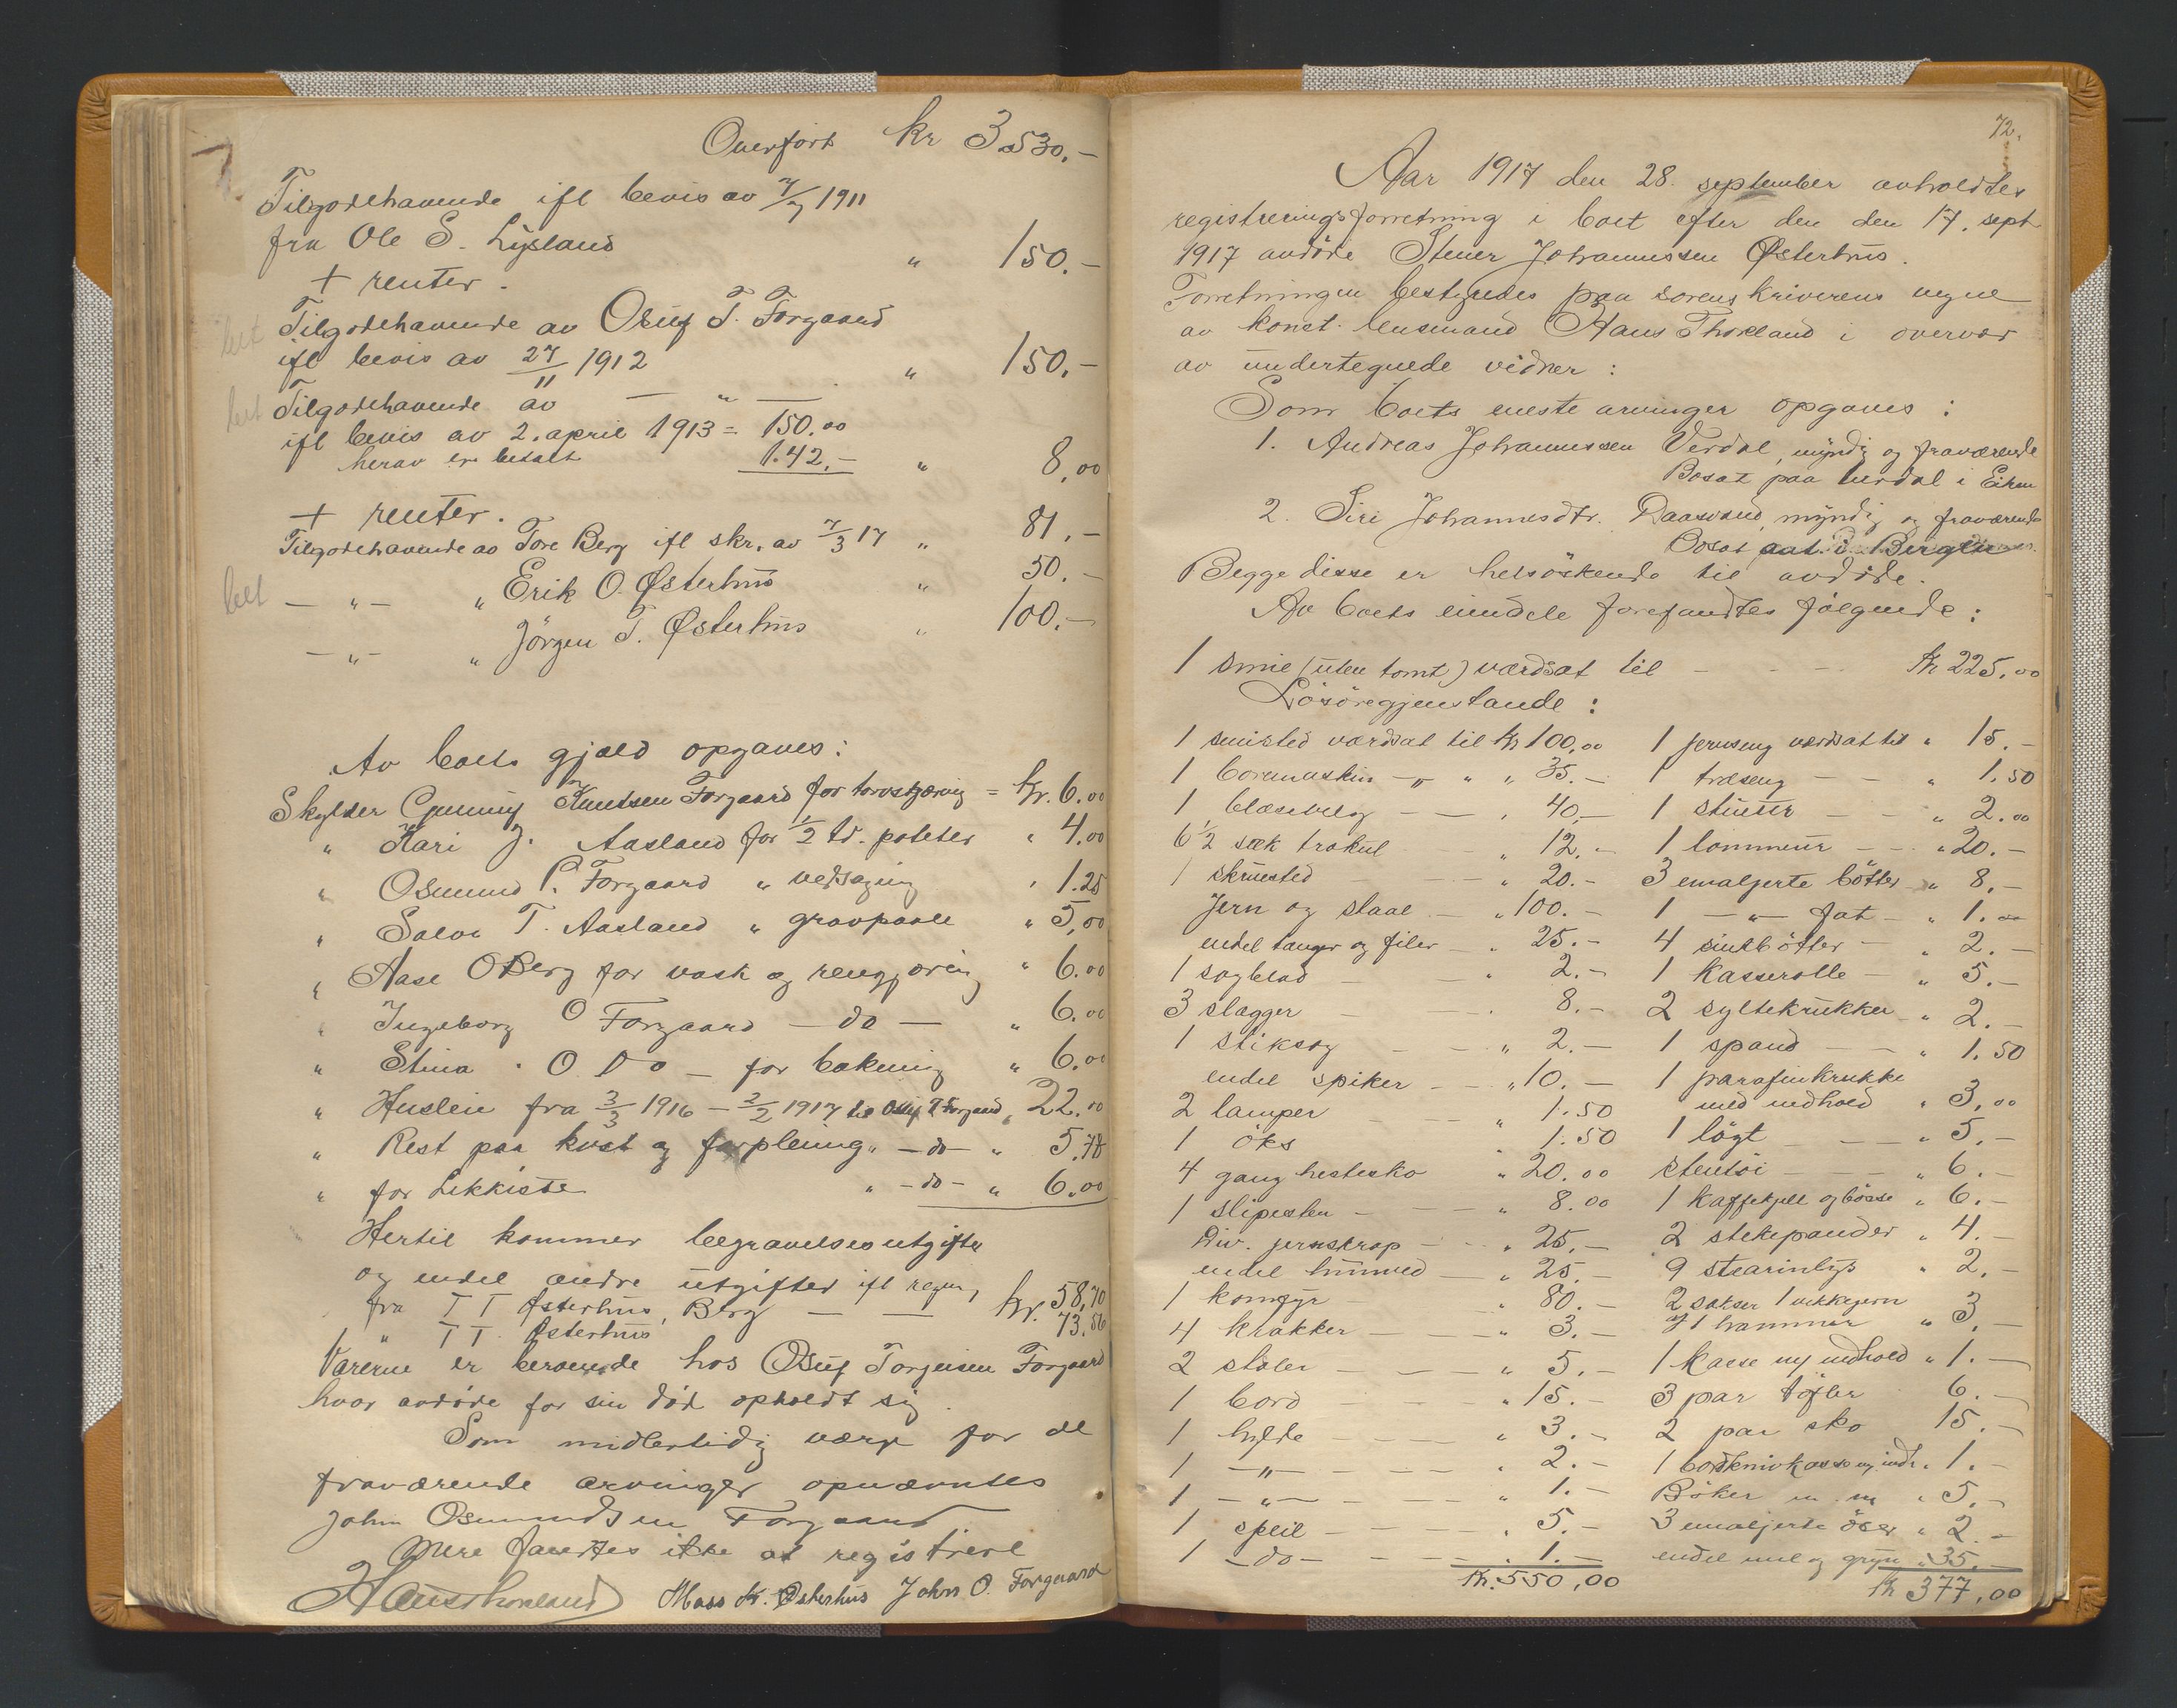 Overført kr 3530.-
Tilgodehavende ifl bevis av 7/7 1911
fra Ole S. Lysland " 150.-
+ renter.
bet Tilgodehavende av Osuf T. Forgaard
ifl bevis av 27/11 1912 " 150.-
bet Tilgodehavende av — " —
ifl bevis av 2. april 1913 = 150.00
herav er betalt 142.- " 8,00
+ renter.
Tilgodehavende av Tore Berg ifl skr. av 7/3 17 " 81.-
bet — " — " Erik O. Østerhus " 50.-
— " — " Jörgen T. Østerhus " 100.-
Av boets gjæld opgaves:
Skylder Gunnuf Knudsen Forgaard for torvskjæring = kr. 6.00
" Kari J. Aasland for 1/2 td. poteter " 4.00
" Osmund P. Forgaard " vedsaging " 1.25
" Salve T. Aasland " gravpaale " 5,00
" Aase O Berg for vask og rengjøring " 6.00
" Ingeborg O Forgaard — do — " 6.00
" Stina " O Do — for bakning " 6.00
" Husleie fra 3/3 1916 — 2/2 1917 til Osuf T Forgaard " 22.00
" Rest paa kost og forpleining " — do — " 5.78
" for Likkiste " — do — " 6.00
Hertil kommer begravelsesutgifter
og endel andre utgifter ifl regning
fra T T Østerhus, Berg — — kr. 58,70
" T T. Østerhus 73.56
Varerne er beroende hos Osuf Torjussen Forgaard
hvor avdøde før sin død opholdt sig.
Som midlertidig værge for de
fraværende arvinger opnævntes
John Osmundsen Forgaard
Mere fandtes ikke at registrere
Hans Thorsland Mass K. Østerhus John O. Forgaard
72.
Aar 1917 den 28. september avholdtes
registreringsforretning i boet efter den den 17. sept
1917 avdöde Stener Johannessen Østerhus.
Forretningen bestyredes paa sorenskriverens vegne
av konst. lensmand Hans Thorsland i overvær
av undertegnede vidner:
Som boets eneste arvinger opgaves:
1. Andreas Johannessen Verdal, myndig og fraværende
Bosat paa Verdal i Eiken
2. Siri Johannesdtr. Raasvand, myndig og fraværende
Bosat i Bergen
Begge disse er helsöskende til avdöde.
Av boets eiendele forefandtes følgende:
1 smie (uten tomt) værdsat til - - - kr 225.00
Lösöregjenstande:
1 smisted værdsat til kr 100,00 1 jernseng værdsat til " 15.-
1 boremaskin — " — " " 35.- 1 træseng - - " 1.50
1 blæsebelg - - " 40,- 1 stueur - - " 2.00
6 1/2 sæk trækul " 12.- 1 lommeur - - " 20.-
1 skruested - " 20.- 3 emaljerte bötter " 8.-
Jern og staal - " 100.- 1 — " — fat - " 1.00
endel tænger og filer - " 25.- 4 sinkbötter - " 2.-
1 sagblad - - " 2.- 1 kasserolle - " 5.-
3 slægger - - " 8.- 2 syltekrukker " 2.-
1 stiksag - - " 2.- 1 spand - - " 1.50
endel spiker - - " 10.- 1 parafinkrukke
2 lamper - " 1.50 med indhold " 3,00
1 öks - " 1.50 1 lögt - - " 5.-
4 gang hestesko " 20.00 stentöi - - " 6.-
1 slipesten - - " 8.00 1 kaffekjel og bösse " 6.-
Div. jernskrap - - " 25.- 2 stekepander " 4.-
endel hunved - " 25.- 9 stearinlys " 2.-
1 komfyr - " 80.- 2 sakser 1 vekkejern
4 krakker - - " 3.- og 1 hammer " 3.-
2 stoler - - " 5.- 1 kasse m/ indhold " 1.-
1 bord - - " 15.- 3 par töfler 6.-
1 hylde - - " 3.- 2 par sko 15.-
1 — " — - - " 2.- 1 bordknivkasse m/ indh. " 1.-
1 — " — - - " 1.- Böker m. m " 5.-
1 speil - - " 5.- 3 emaljerte öser " 2.-
1 — do — - - " 1.- endel mel og gryn " 35.-
kr. 550,00 kr 377,00